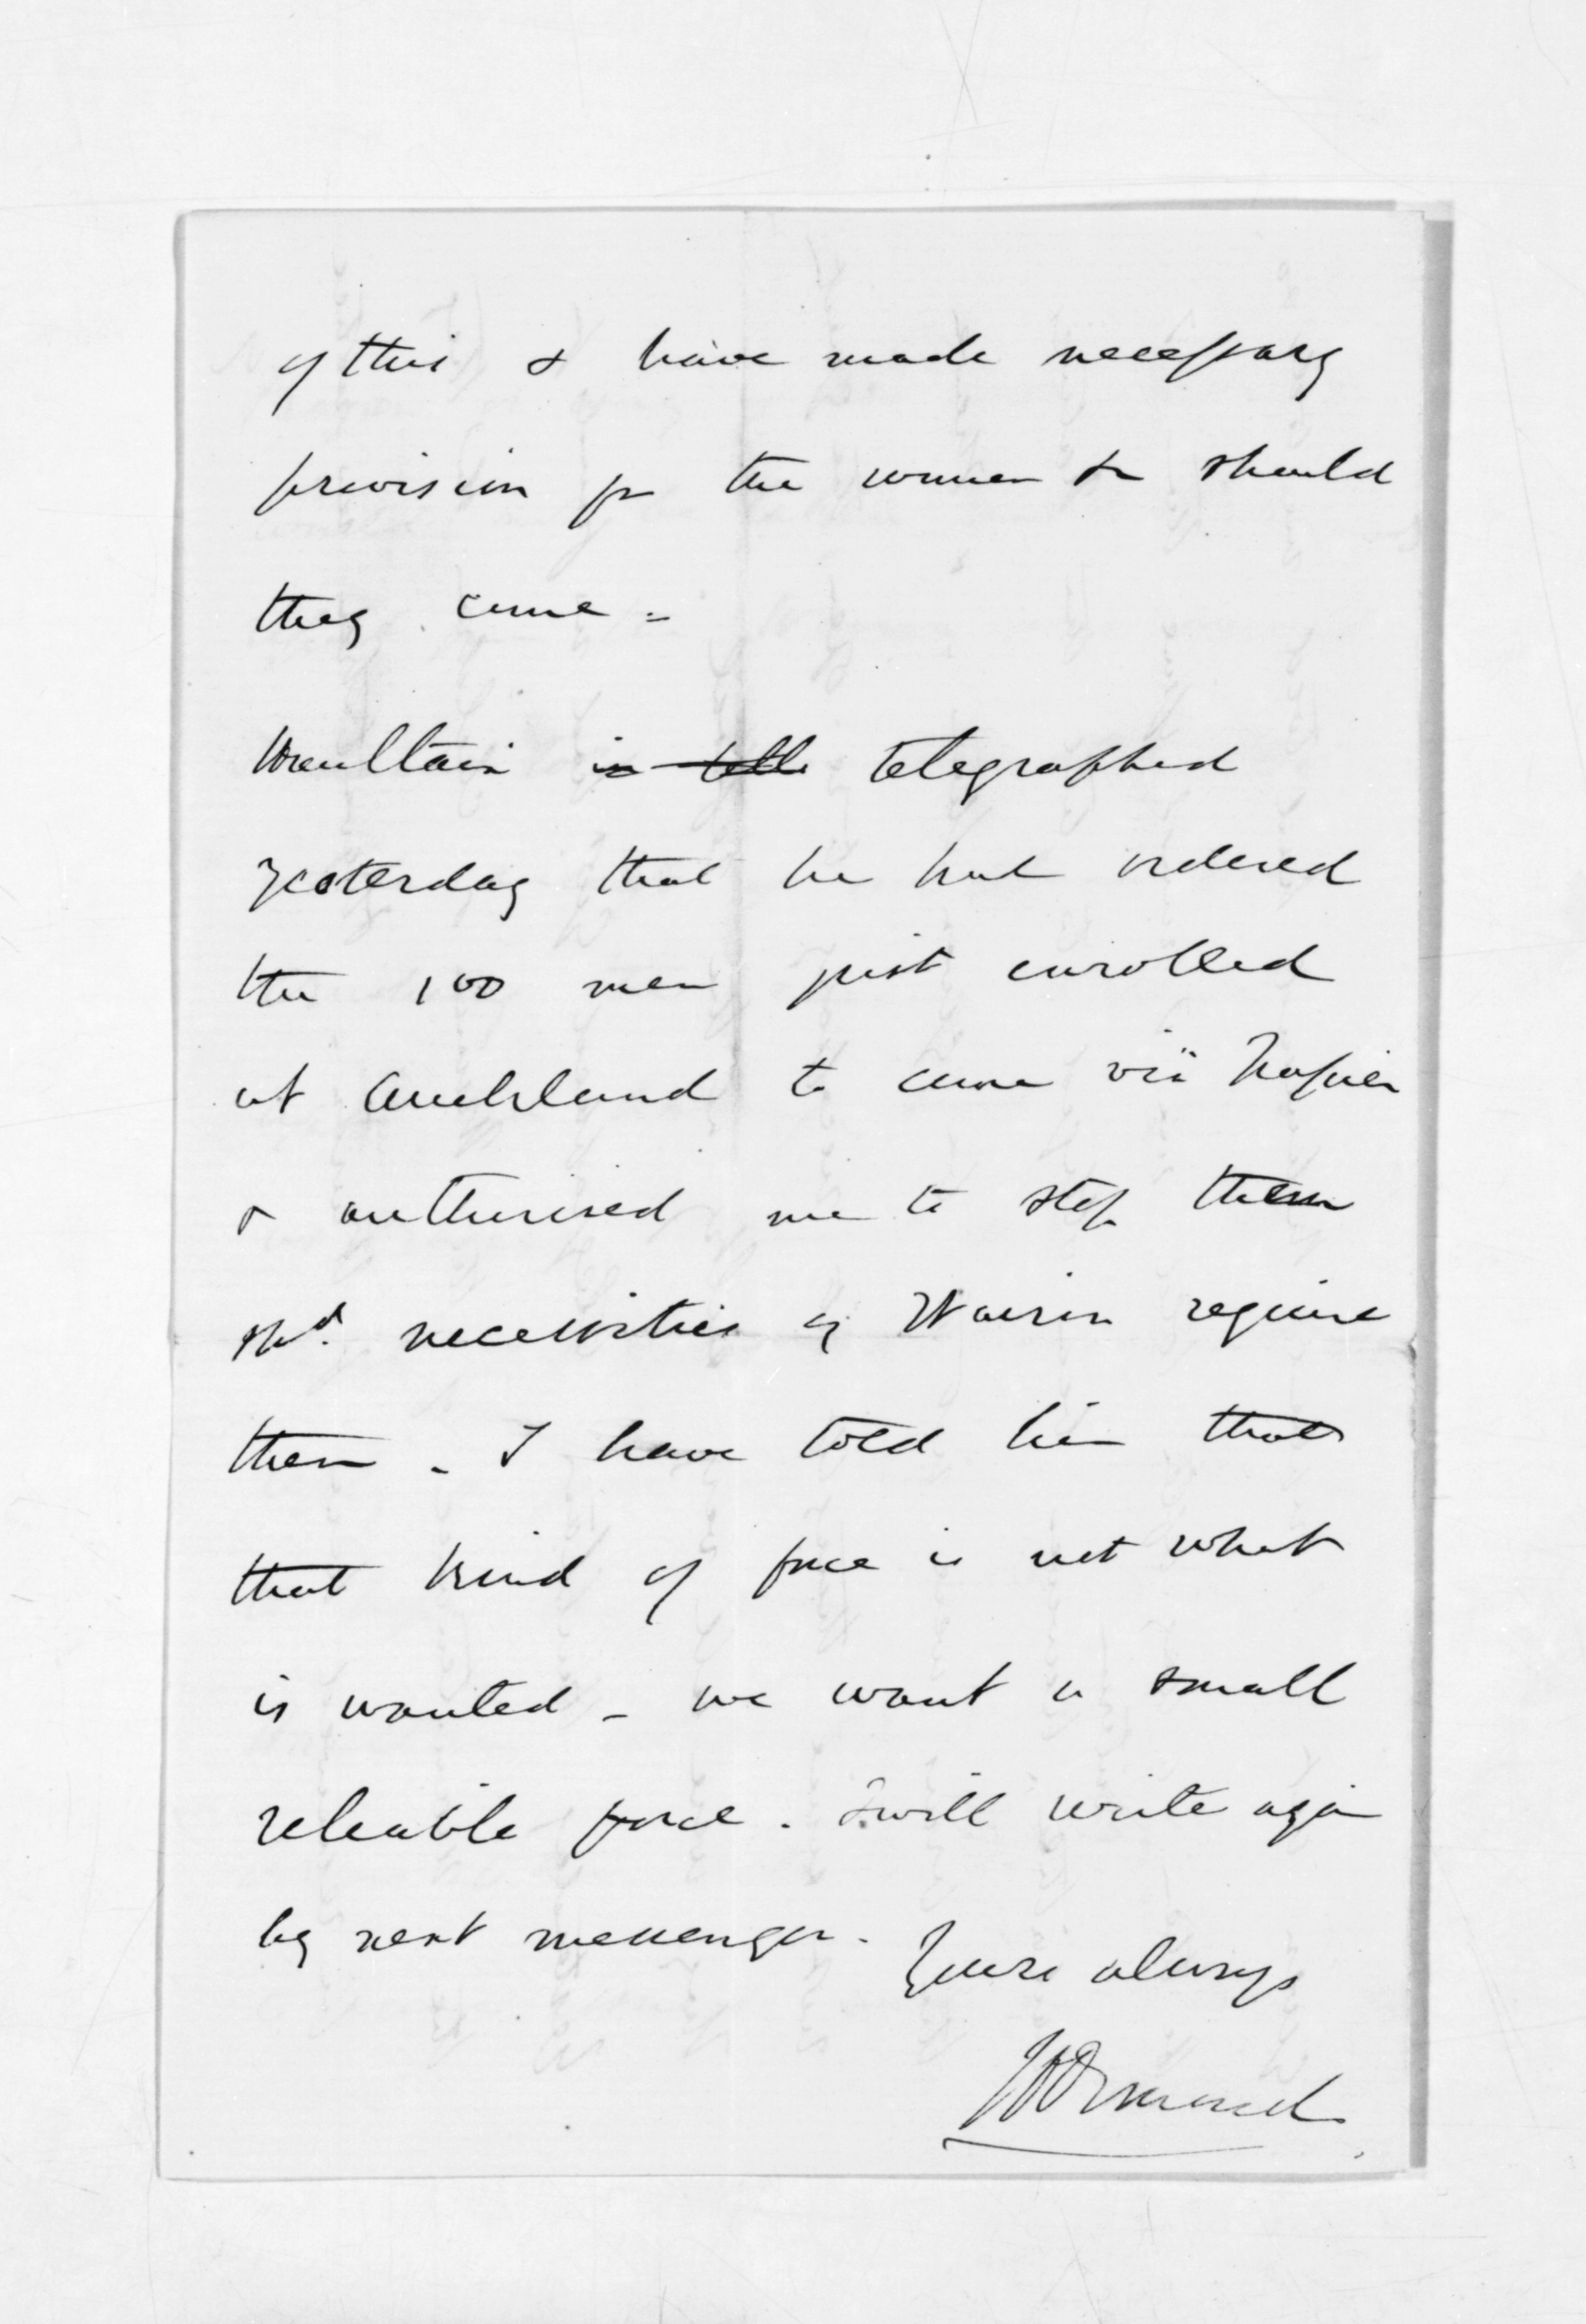 of this & have made necessary
provision for the women &c should
they come =
Haultain is tells telegraphed
yesterday that he had ordered
the 100 men just enrolled
at Auckland to come viä Napier
& authorised me to stop them
shd. necessities of Wairoa require
them - I have told him that
that kind of force is not what
is wanted - we want a small
reliable force. I will write again
by next messenger.
Yours always
JD Ormond